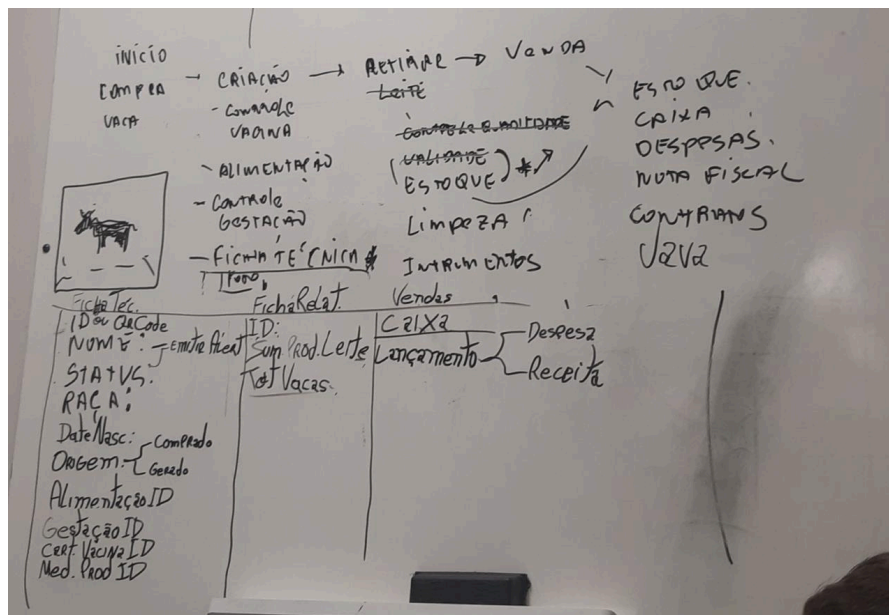 INÍCIO
COMPRA → CRIAÇÃO → RETIRAR → VENDA
VACA
- CONTROLE
VACINA
- ALIMENTAÇÃO
- CONTROLE
GESTAÇÃO
- FICHA TÉCNICA *
LEITE
CONTROLE QUALIDADE
(VALIDADE)
ESTOQUE *
LIMPEZA
INTRUMENTOS
ESTOQUE.
CAIXA
DESPESAS.
NOTA FISCAL
Ficha Tec.
ID ou QRCode
NOME:
STATUS:
RAÇA:
Date Nasc:
Origem: Comprado
Gerado
Alimentação ID
Gestação ID
Cert. Vacina ID
Med. Prod ID
Ficha Relat.
ID:
Sum Prod. Leite
Tot Vacas.
Vendas
Caixa
Lançamento Despesa
Receita